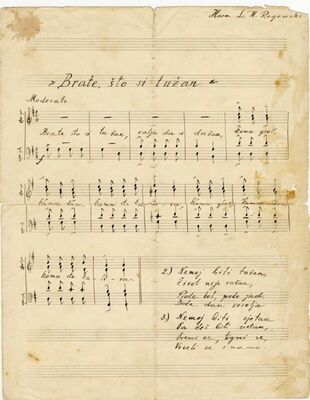 Harm. L. M. Rogowski
» Brate, što si tužan «
Moderato
Brate što si tužan, valja da si dužan, komu groš,
komu dva, komu groš
komu
2.) Nemoj biti tužan,
Život nije ružan,
Prođe bol, prođe jad,
Dođe dan veselja
3.) Nemoj biti sjetan
biti sjetan,
se, se,
Veseli se s nama